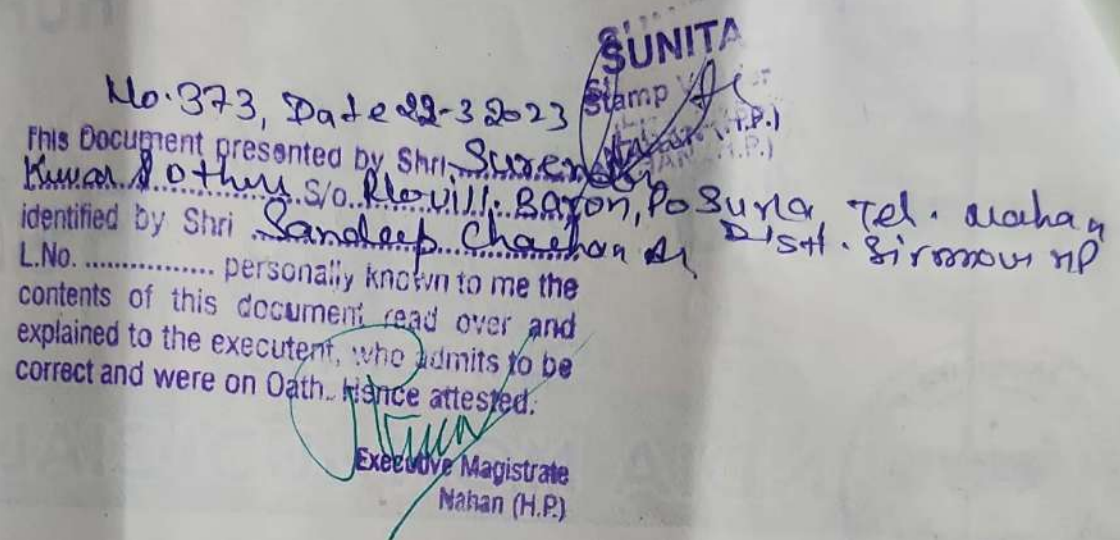 SUNITA
Stamp
No. 373, Date 22-3 2023
This Document presented by Shri Surender
Kumar & others S/o R/o Vill. Baron, Po Surla, Teh. Nahan
identified by Shri Sandeep Chauhan Dist. Sirmour HP
L.No. ............... personally known to me the
contents of this document read over and
explained to the executent, who admits to be
correct and were on Oath. Hence attested.
Executive Magistrate
Nahan (H.P.)